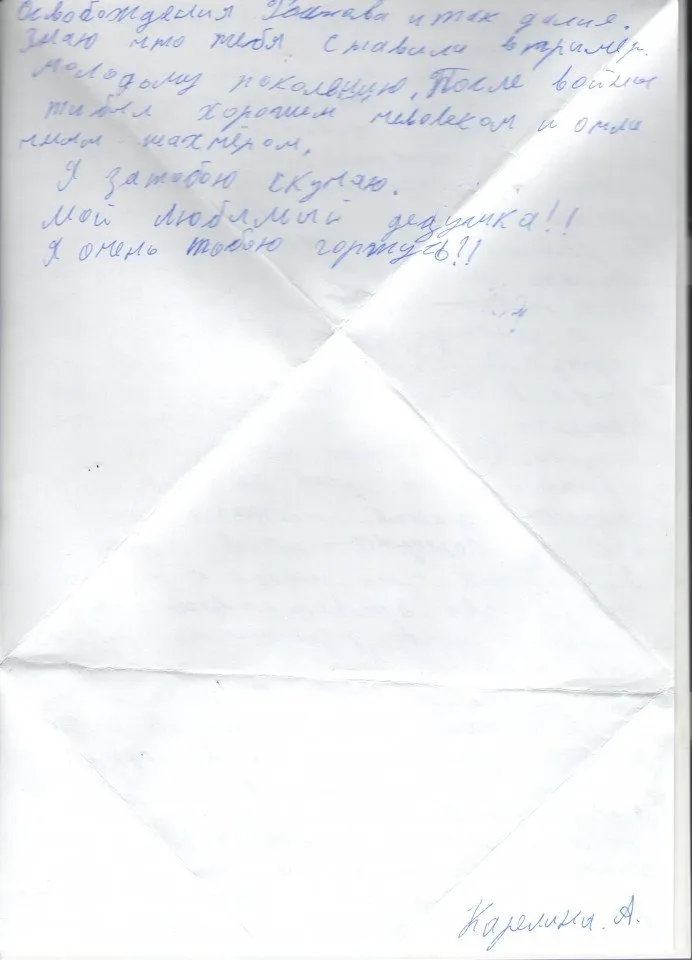 Освобождения Ростова и так далия.
Знаю что тебя ставили впример.
молодому поколению. После войны
ты был хорошем человеком и отли
чным шахтёром.
Я затобою скучаю.
Мой любимый дедушка!!
Я очень тобою горжусь!!
Карелина. А.